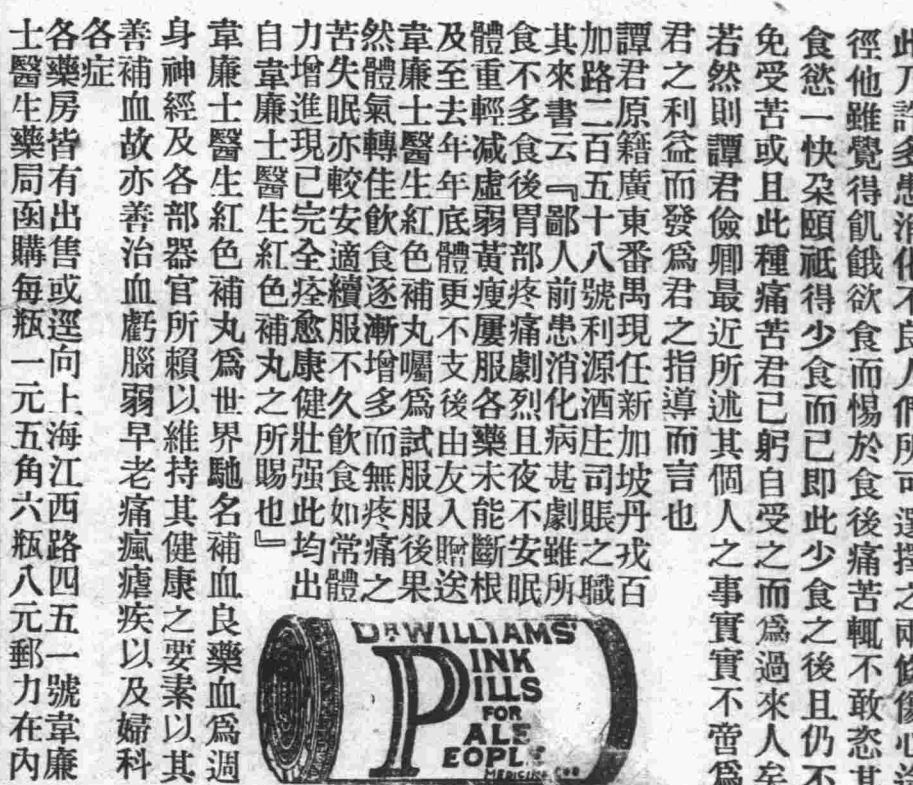 此乃許多患消化不良人們所可選擇之兩條傷心
徑他雖覺得飢餓欲食而惕於食後痛苦輒不敢恣其
食慾一快朶頤祇得少食而已即此少食之後且仍不
免受苦或且此種痛苦君已躬自受之而爲過來人矣
若然則譚君儉卿最近所述其個人之事實實不啻爲
君之利益而發爲君之指導而言也
譚君原籍廣東番禺現任新加坡丹戎百
加路二百五十八號利源酒庄司賬之職
其來書云『鄙人前患消化病甚劇雖所
食不多食後胃部疼痛劇烈且夜不安眠
體重輕減虛弱黃瘦屢服各藥未能斷根
及至去年年底體更不支後由友人贈送
韋廉士醫生紅色補丸囑爲試服服後果
然體氣轉佳飲食逐漸增多而無疼痛之
苦失眠亦較安適續服不久飲食如常體
力增進現已完全痊愈康健壯强此均出
自韋廉士醫生紅色補丸之所賜也』
韋廉士醫生紅色補丸爲世界馳名補血良藥血爲週
身神經及各部器官所賴以維持其健康之要素以其
善補血故亦善治血虧腦弱早老痛瘋瘧疾以及婦科
各症
各藥房皆有出售或逕向上海江西路四五一號韋廉
士醫生藥局函購每瓶一元五角六瓶八元郵力在內
DR WILLIAMS'
PINK
PILLS
FOR
PALE
PEOPLE